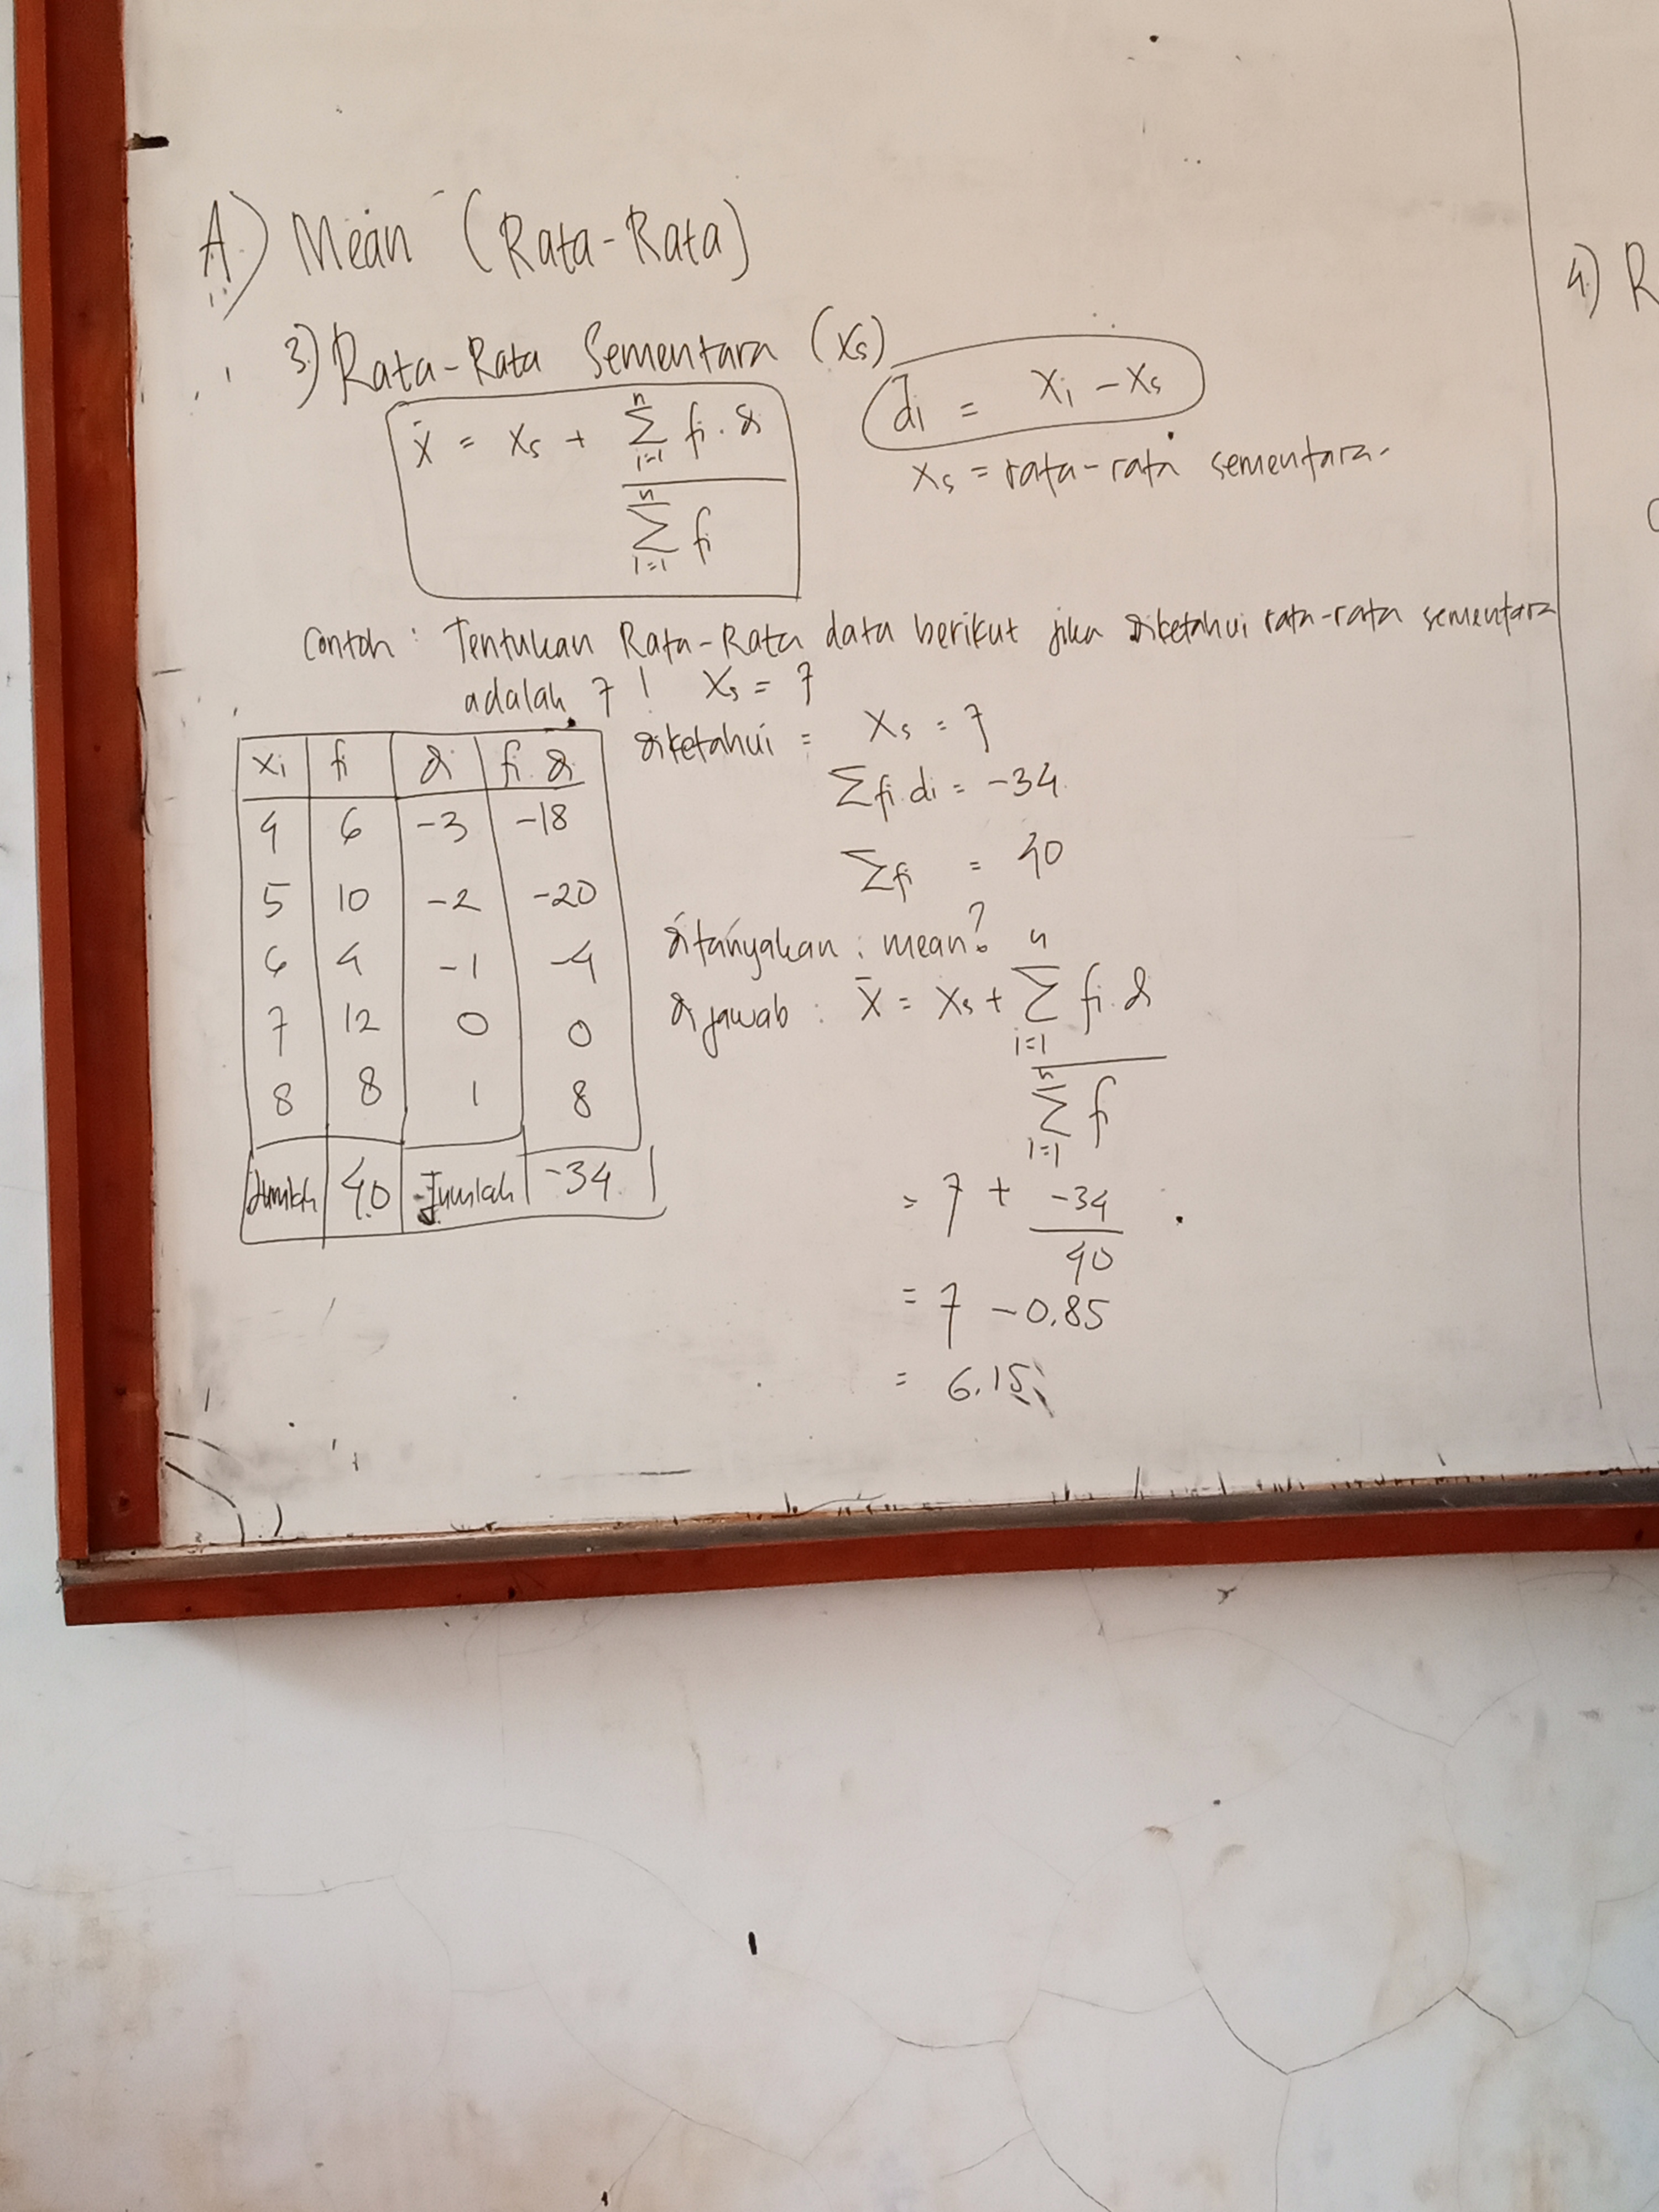 A.) Mean (Rata-Rata)
3) Rata-Rata Sementara (Xs)
x̄ = Xs + Σ fi . di
n
i=1
Σ fi
n
i=1
di = Xi - Xs
Xs = rata-rata sementara.
Contoh : Tentukan Rata-Rata data berikut jika diketahui rata-rata sementara
adalah 7 ! Xs = 7
Xi fi di fi . di
4 6 -3 -18
5 10 -2 -20
6 4 -1 -4
7 12 0 0
8 8 1 8
Jumlah 40 Jumlah -34
diketahui = Xs = 7
Σfi.di = -34
Σfi = 40
ditanyakan : mean?
dijawab : x̄ = Xs + Σ fi . di
n
i=1
Σ fi
n
i=1
= 7 + -34
40
= 7 - 0.85
= 6.15
4) R